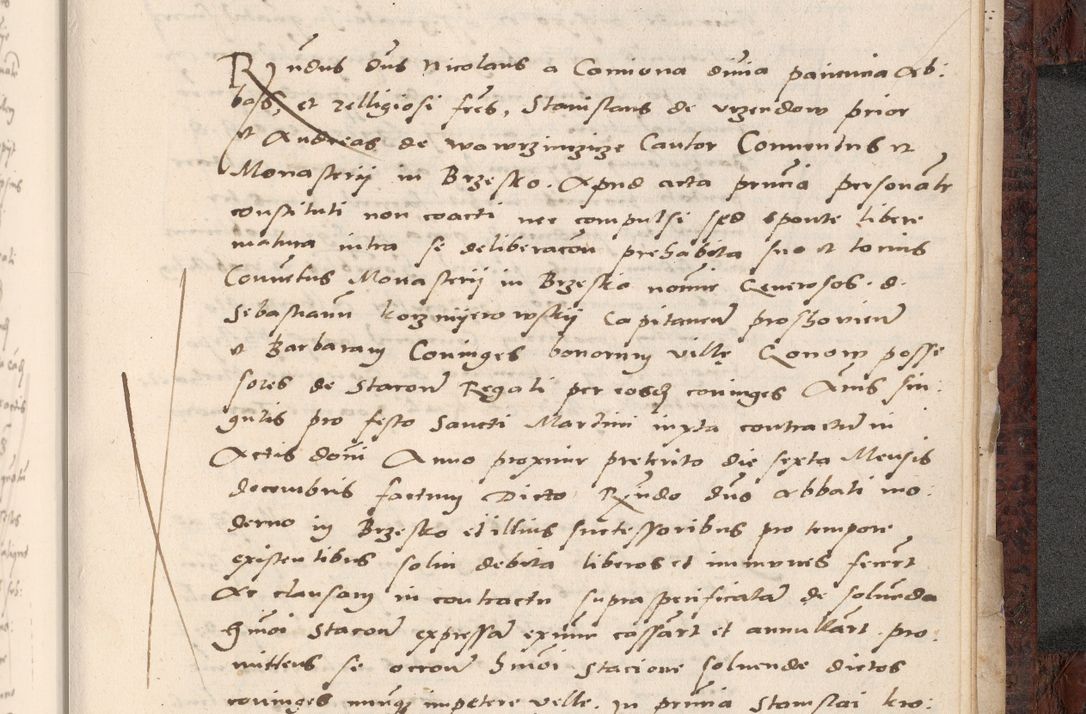 Rndus dns Nicolaus a Comiona divina pacientia Ab:
bas, et relligiosi fres, Stanislaus de Vrzendow prior
et Andreas de Wawrzinczicze Cantor Conventus et
Monasterij in Brzesko. Apud acta pruncia personaltr
constituti non coacti nec compulsi sed sponte libere
matura intra se deliberacon prehabita suo et totius
Conventus Monasterij in Brzesko nomine Generosos. d.
Sebastianum Korzmijerowskij Capitaneu proszovien
et Barbaram Coniuges bonorum ville Gonow posse
sores de Stacion Regali per eosdem coniuges Annis sin:
gulis pro festo Sancti Martini iuxta contractum in
Actis domi Anno proxime preterito die sexta Mensis
decembris factum Dicto Rndo dno abbati mo:
derno in Brzesko et illius successoribus pro tempore
existentibus solui debita liberos et immunes fecert
Ac clausam in contractu supraspecificatam de soluenda
hmoi Stacion expressam exnunc cassart et annullart. pro:
mittens se occasione hmoi Stacione soluende dictos
coniuges nunquam impetere velle. In pruncia Stanislai Kro: